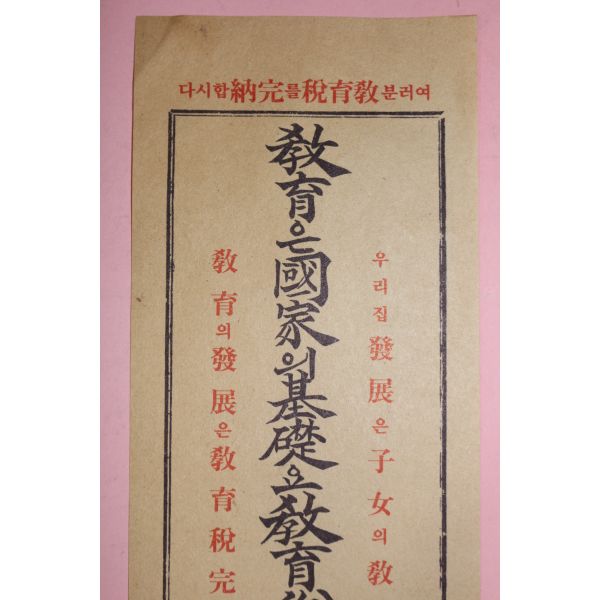 다시합納完를稅育敎분러여
우리집發展은子女의敎
敎育은國家의基礎요敎育
敎育의發展은敎育稅完